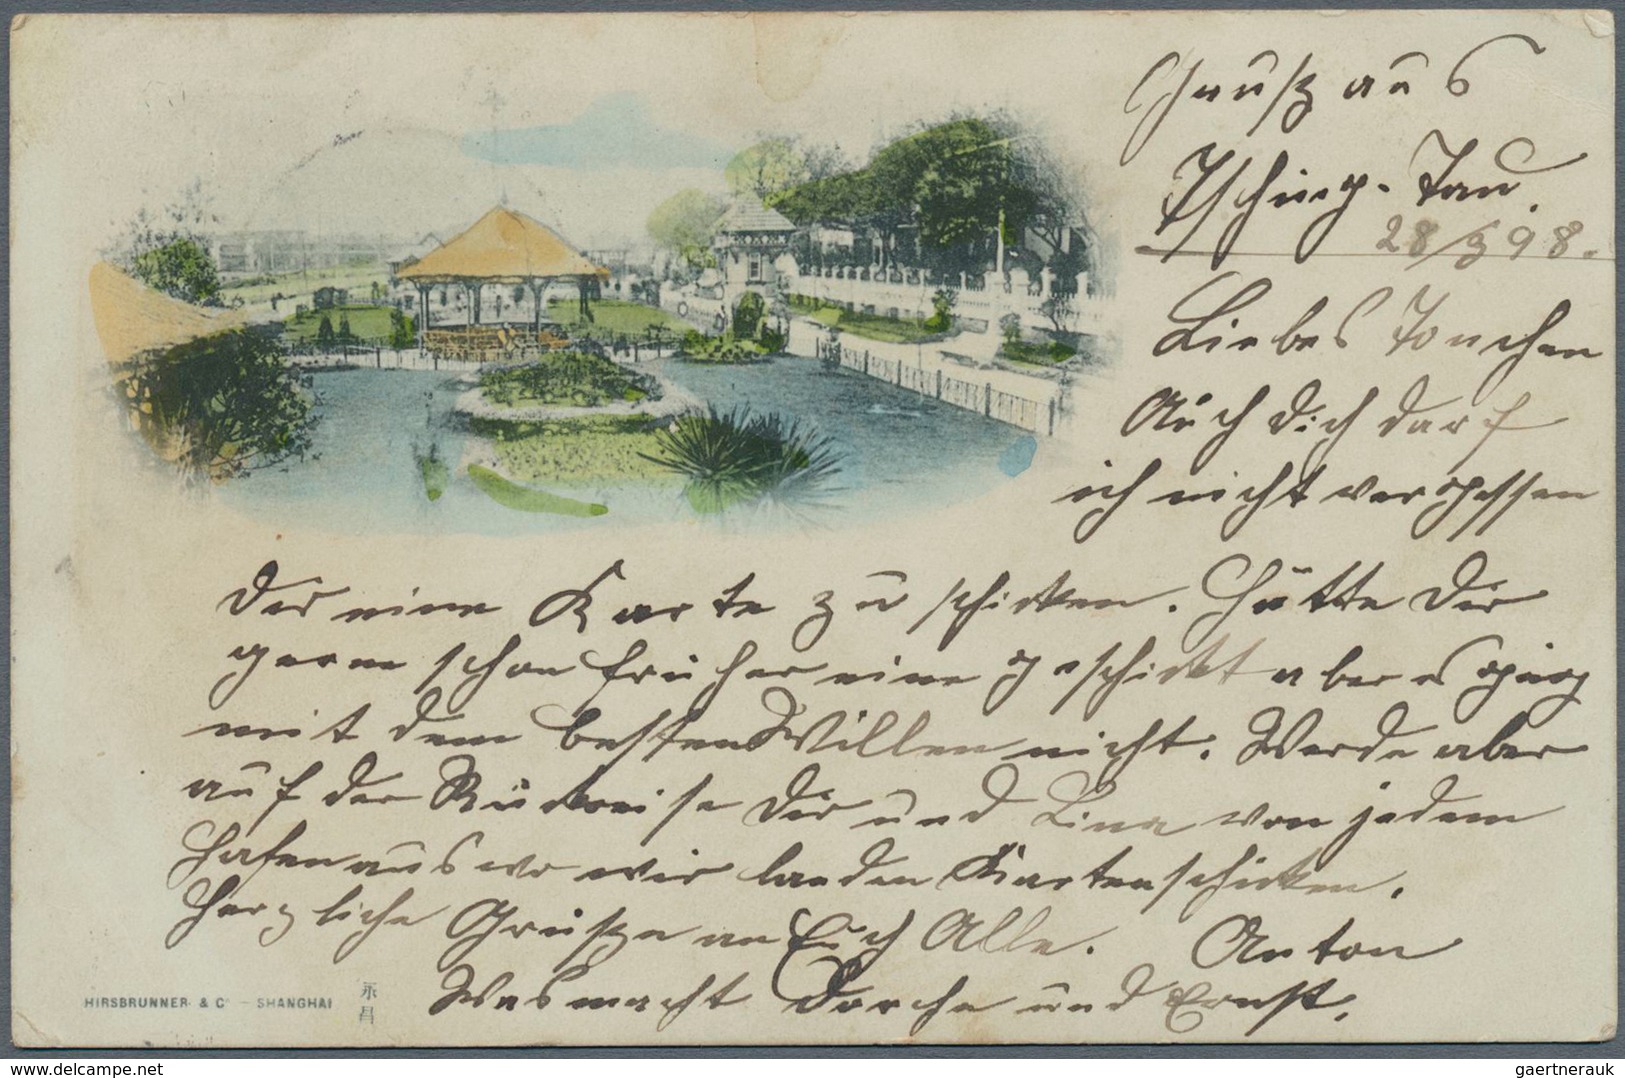 Gruß aus
Tsching-Tau.
28/3 98.
Liebes Tonchen
Auch Dich darf
ich nicht vergessen
Dir eine Karte zu schicken. Hätte Dir
gerne schon früher eine geschickt aber es ging
mit dem besten Willen nicht. Werde aber
auf der Rückreise Dir und Lina von jedem
Hafen aus wo wir landen Karten schicken.
Herzliche Grüße an Euch Alle. Anton
Was macht Dorche und Ernst.
HIRSBRUNNER & Co - SHANGHAI
永昌
www.delcampe.net
gaertnerauk